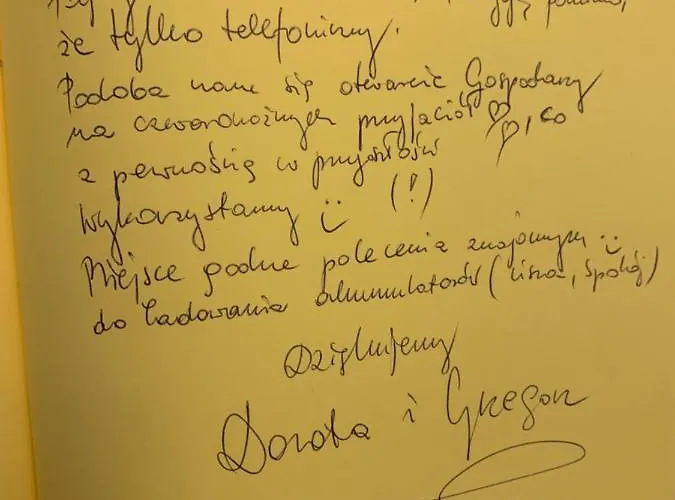 że tylko telefoniczny.
Podoba nam się otwarcie Gospodarzy
na czworonożnych przyjaciół ♡♡, co
z pewnością w przyszłości
wykorzystamy ☺ (!)
Miejsce godne polecenia znajomym ☺
do ładowania akumulatorów (cisza, spokój)
Dziękujemy
Dorota i Grzegorz